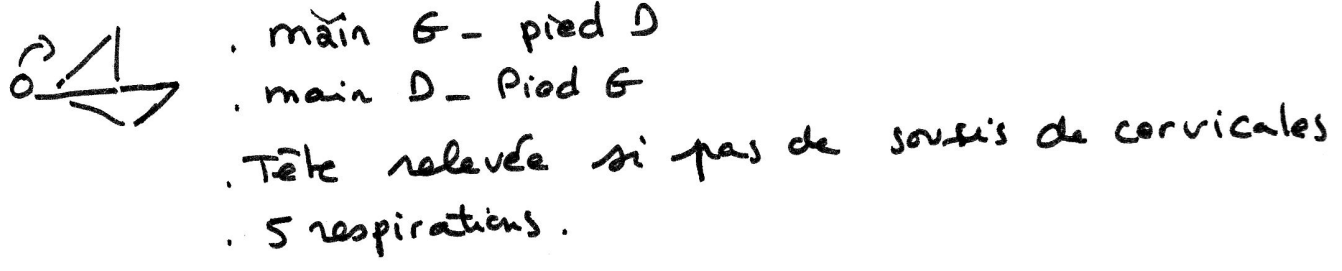 . main G - pied D
. main D - Pied G
. Tête relevée si pas de soucis de cervicales
. 5 respirations.